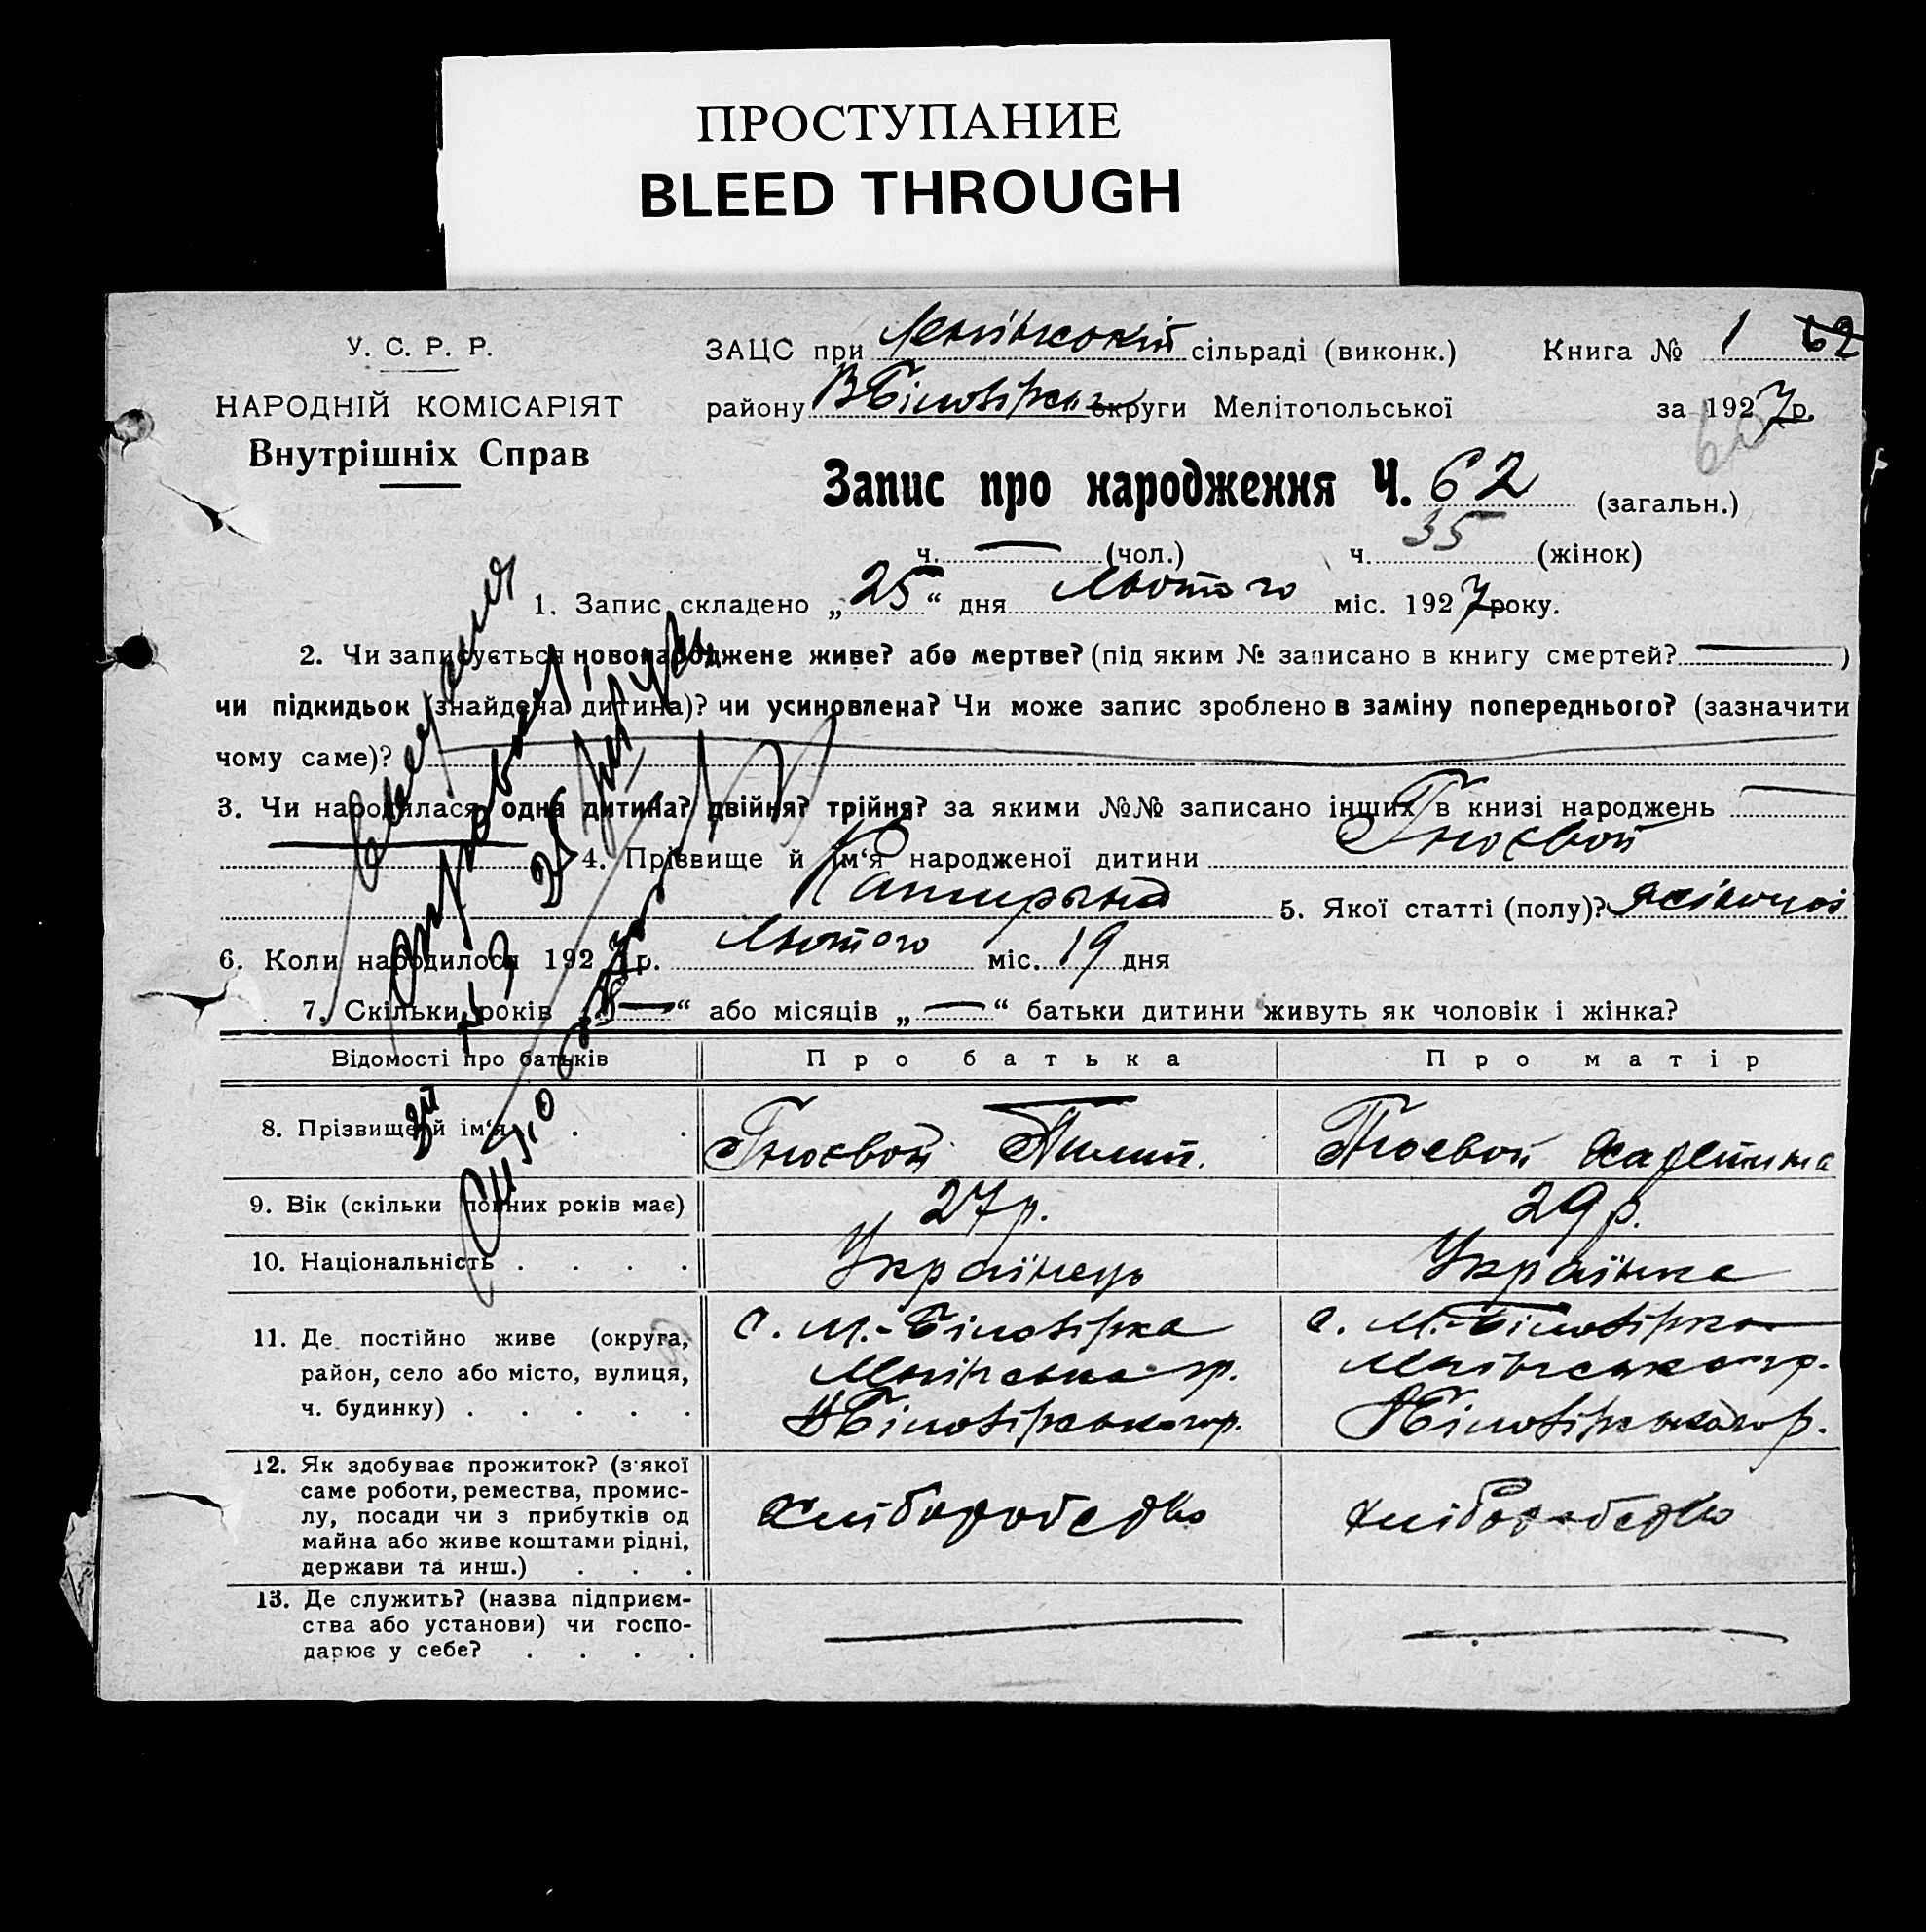 ПРОСТУПАНИЕ
BLEED THROUGH
У. С. Р. Р.
НАРОДНІЙ КОМІСАРІЯТ
Внутрішніх Справ
ЗАЦС при сільраді (виконк.) Книга № 1 62
району ВБілозірськ округи Мелітопольської за 1927 р.
Запис про народження Ч. 62 (загальн.)
ч. — (чол.) ч. 35 (жінок)
1. Запис складено „25“ дня Лютого міс. 1927 року.
2. Чи записується новонароджене живе? або мертве? (під яким № записано в книгу смертей? — )
чи підкидьок (знайдена дитина)? чи усиновлена? Чи може запис зроблено в заміну попереднього? (зазначити
чому саме)?
3. Чи народилася одна дитина? двійня? трійня? за якими №№ записано інших в книзі народжень —
4. Прізвище й ім‘я народженої дитини Гноєвой
Катирына 5. Якої статті (полу)? жіночої
6. Коли народилося 1927 р. Лютого міс. 19 дня
7. Скільки років „—“ або місяців „—“ батьки дитини живуть як чоловік і жінка?
Відомості про батьків Про батька Про матір
8. Прізвище й ім‘я . . Гноєвой Пилип. Гноевой
9. Вік (скільки повних років має) 27 р. 29 р.
10. Національність . . . . Українець Українка
11. Де постійно живе (округа,
район, село або місто, вулиця,
ч. будинку) . . . . .
с. М.-Білозірка
ВБілозірського р.
с. М.-Білозірка
ВБілозірського р.
12. Як здобуває прожиток? (з якої
саме роботи, ремества, промис-
лу, посади чи з прибутків од
майна або живе коштами рідні,
держави та инш.) . . .
хліборобство
хліборобство
13. Де служить? (назва підприєм-
ства або установи) чи госпо-
дарює у себе? . . . .